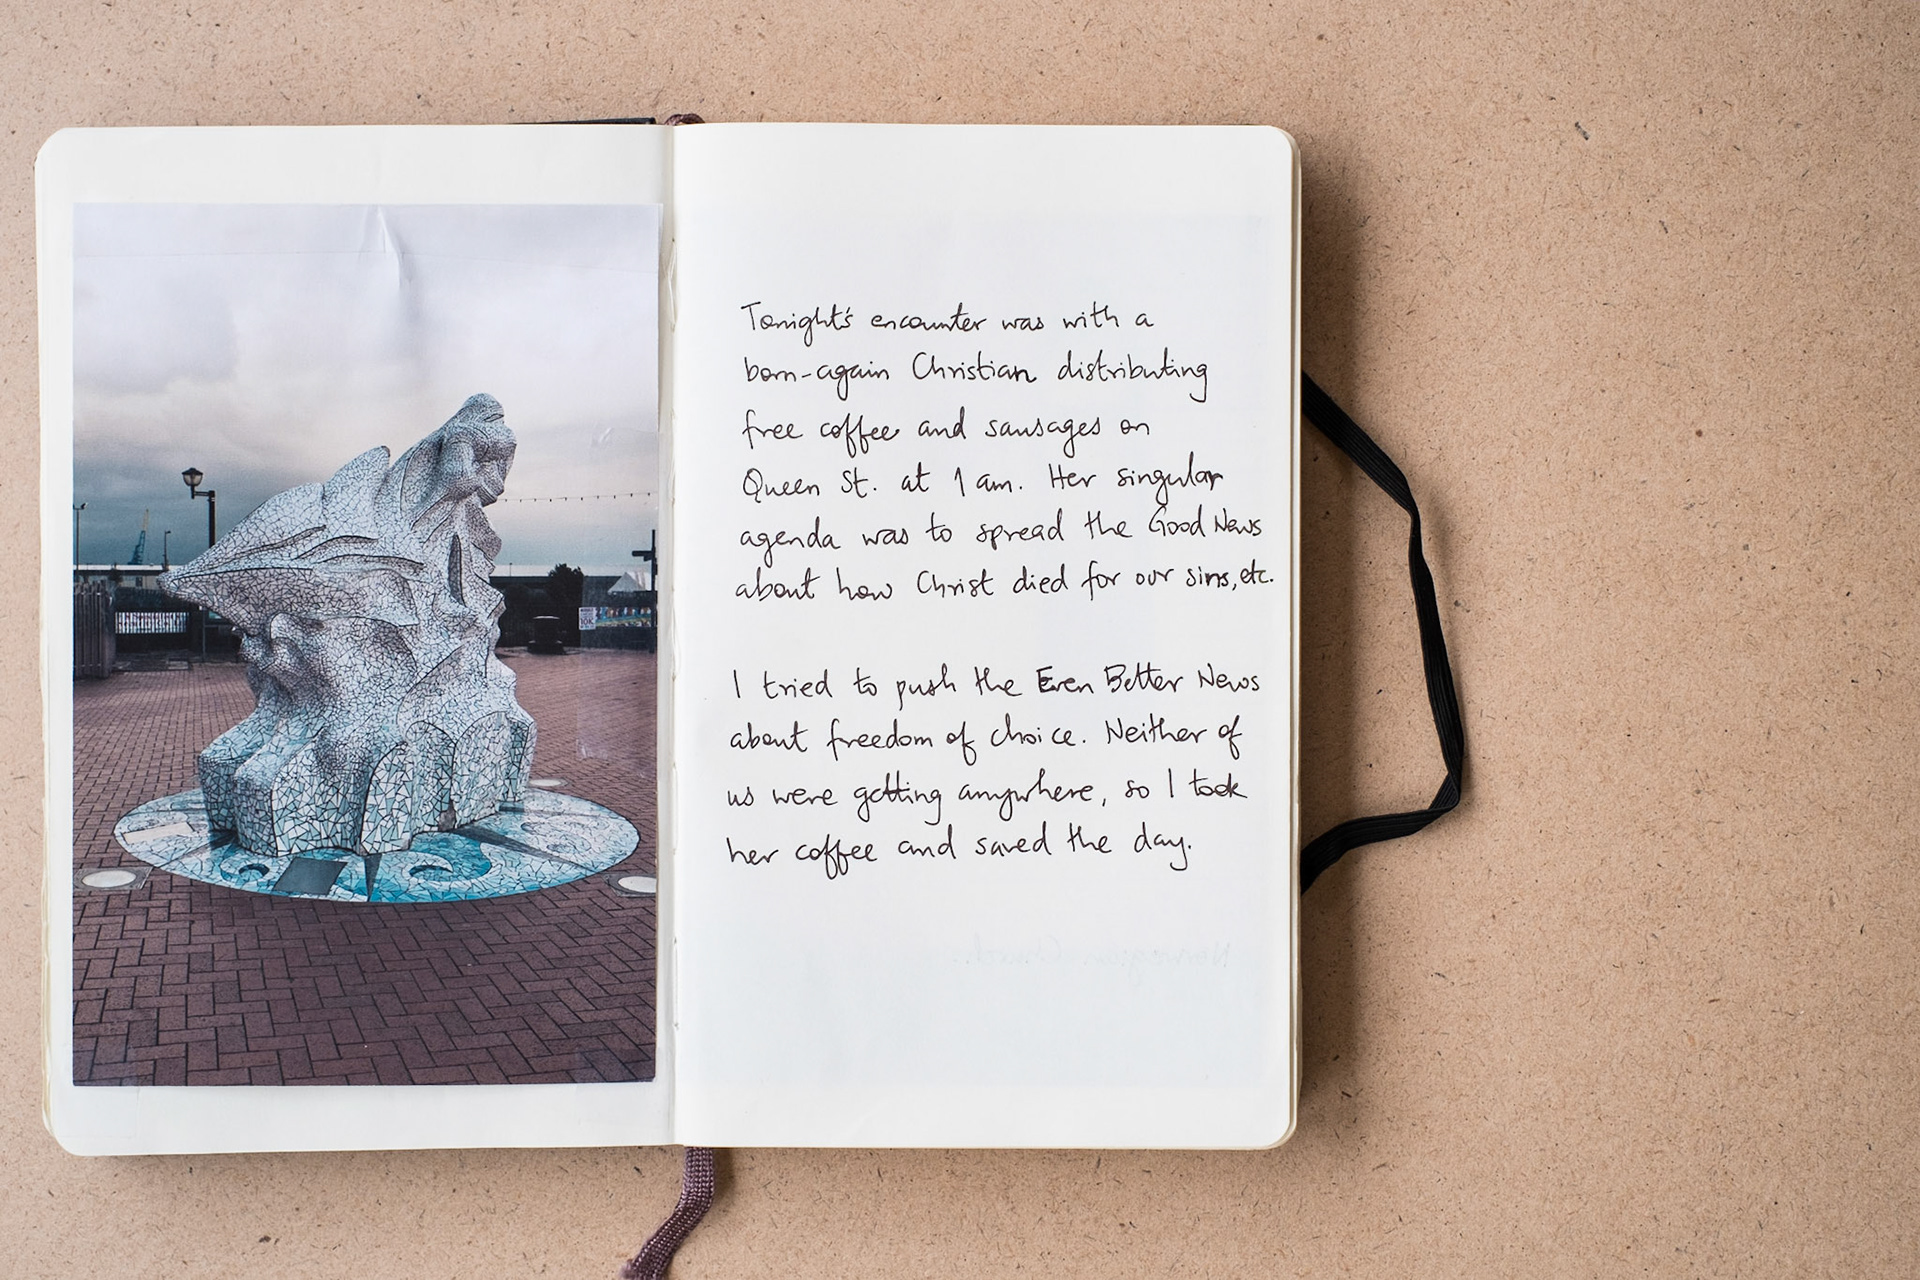 Tonight's encounter was with a
born-again Christian distributing
free coffee and sausages on
Queen St. at 1 am. Her singular
agenda was to spread the Good News
about how Christ died for our sins, etc.
I tried to push the Even Better News
about freedom of choice. Neither of
us were getting anywhere, so I took
her coffee and saved the day.